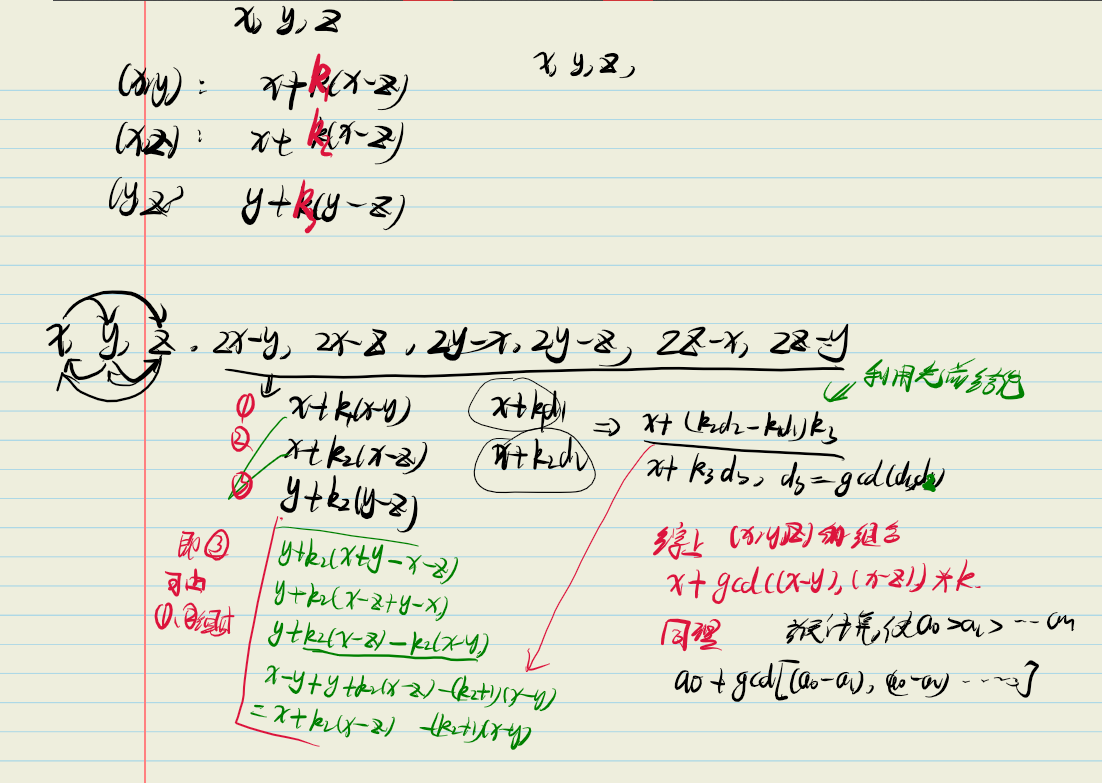 x, y, z
x, y, z,
(x,y) : x+k₁(x-z)
(x,z) : x+k₂(x-z)
(y,z) y+k₃(y-z)
x, y, z, 2x-y, 2x-z, 2y-x, 2y-z, 2z-x, 2z-y
利用 结论
① x+k₁(x-y)
② x+k₂(x-z)
③ y+k₂(y-z)
x+k₁d₁
x+k₂d₂
⇒ x+(k₂d₂-k₁d₁)k₃
x+k₃d₃, d₃=gcd(d₁,d₂)
即③
可由
①、②组成
y+k₂(x+y-x-z)
y+k₂(x-z+y-x)
y+k₂(x-z)-k₂(x-y)
x-y+y+k₂(x-z)-(k₂+1)(x-y)
=x+k₂(x-z) -(k₂+1)(x-y)
综上 (x,y,z)的组合
x+gcd((x-y),(x-z))*k.
同理
a₀>a₁>…aₙ
a₀+gcd[(a₀-a₁), (a₀-a₂) ……]